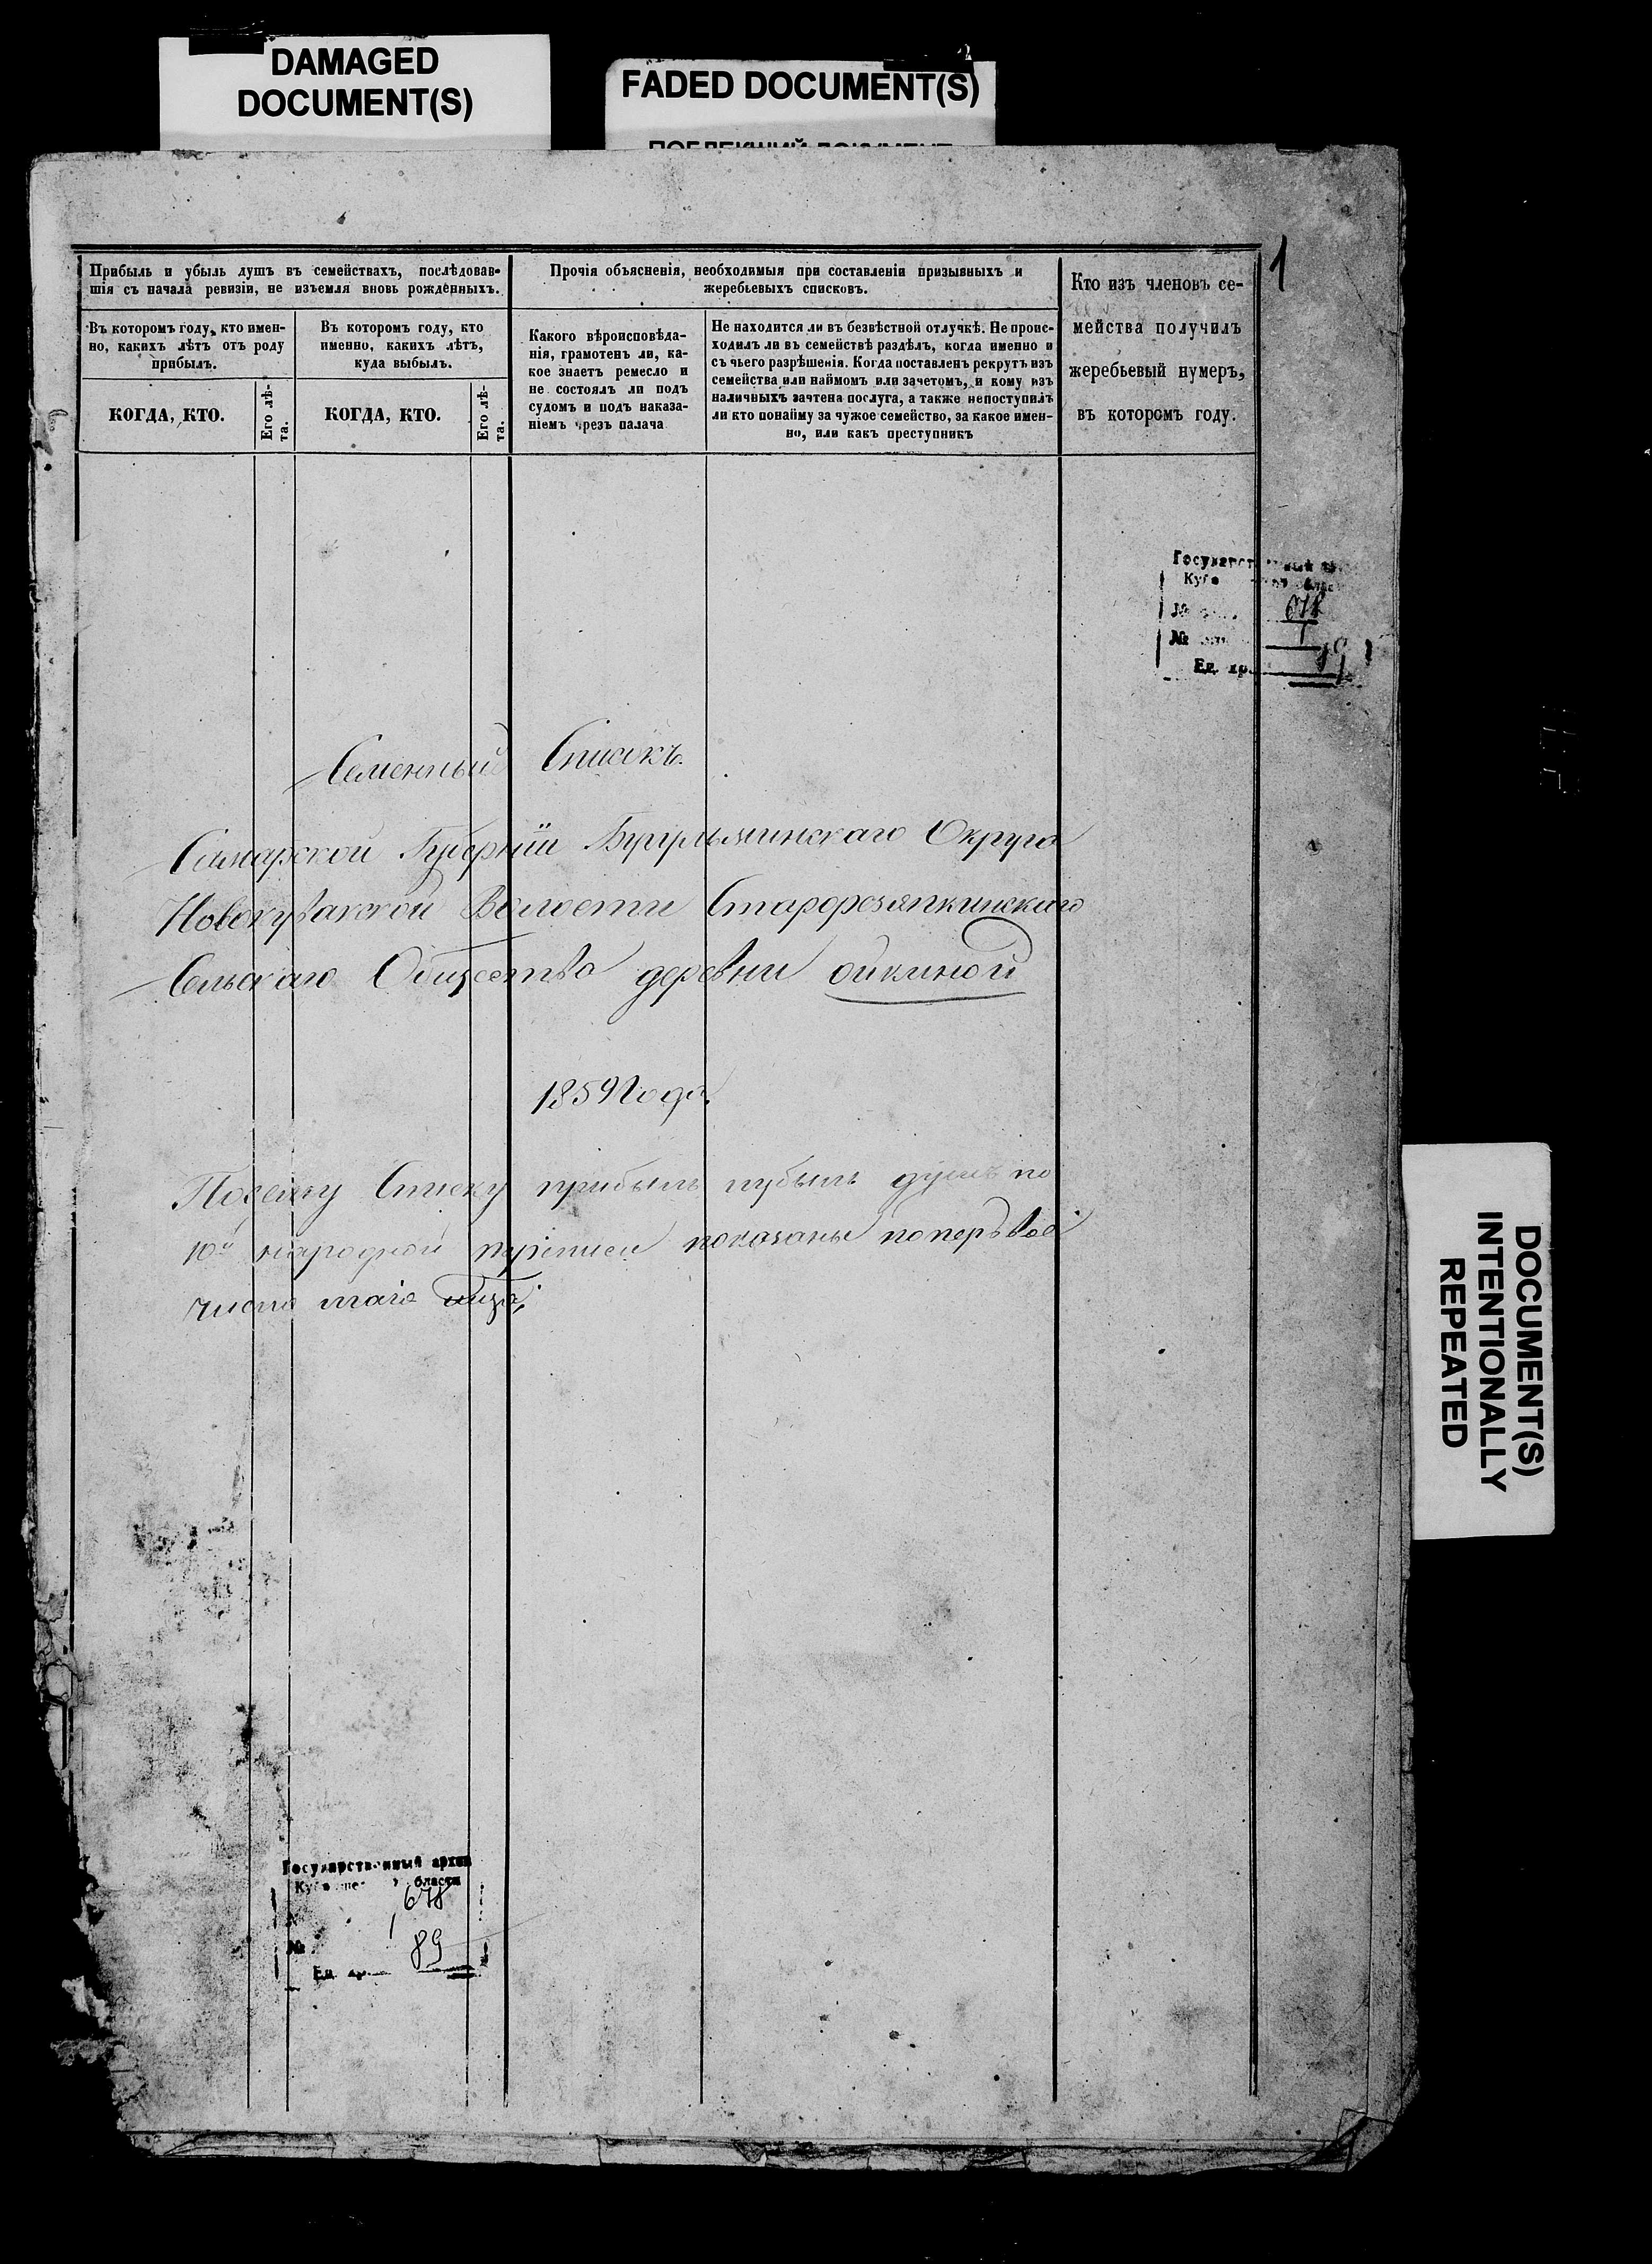 DAMAGED
DOCUMENT(S)
FADED DOCUMENT(S)
1
Прибыль и убыль душъ въ семействахъ, послѣдовав-
шія съ начала ревизіи, не изъемля вновь рожденныхъ.
Въ которомъ году, кто имен-
но, какихъ лѣтъ отъ роду
прибылъ.
КОГДА, КТО.
Его лѣ-
та.
Въ которомъ году, кто
именно, какихъ лѣтъ,
куда выбылъ.
КОГДА, КТО.
Его лѣ-
та.
Прочія объясненія, необходимыя при составленіи призывныхъ и
жеребьевыхъ списковъ.
Какого вѣроисповѣда-
нія, грамотенъ ли, ка-
кое знаетъ ремесло и
не состоялъ ли подъ
судомъ и подъ наказа-
ніемъ чрезъ палача
Не находится ли въ безвѣстной отлучкѣ. Не проис-
ходилъ ли въ семействѣ раздѣлъ, когда именно и
съ чьего разрѣшенія. Когда поставленъ рекрутъ изъ
семейства или наймомъ или зачетомъ, и кому изъ
наличныхъ зачтена послуга, а также непоступилъ
ли кто понайму за чужое семейство, за какое имен-
но, или какъ преступникъ
Кто изъ членовъ се-
мейства получилъ
жеребьевый нумеръ,
въ которомъ году.
678
1
Ед. хр.
Семейный Списокъ
Самарской Губерніи Бугульминскаго Округа
Новокувакской Волости Старорезяпкинскаго
Сельскаго Общества деревни ойкиной
1859 Года.
Посему Списку прибыль иубыль душъ по
10й народной переписи показаны поперьвое
число маія
Государственный архив
области
678
№ 1
Ед. хр. 89
DOCUMENT(S)
INTENTIONALLY
REPEATED